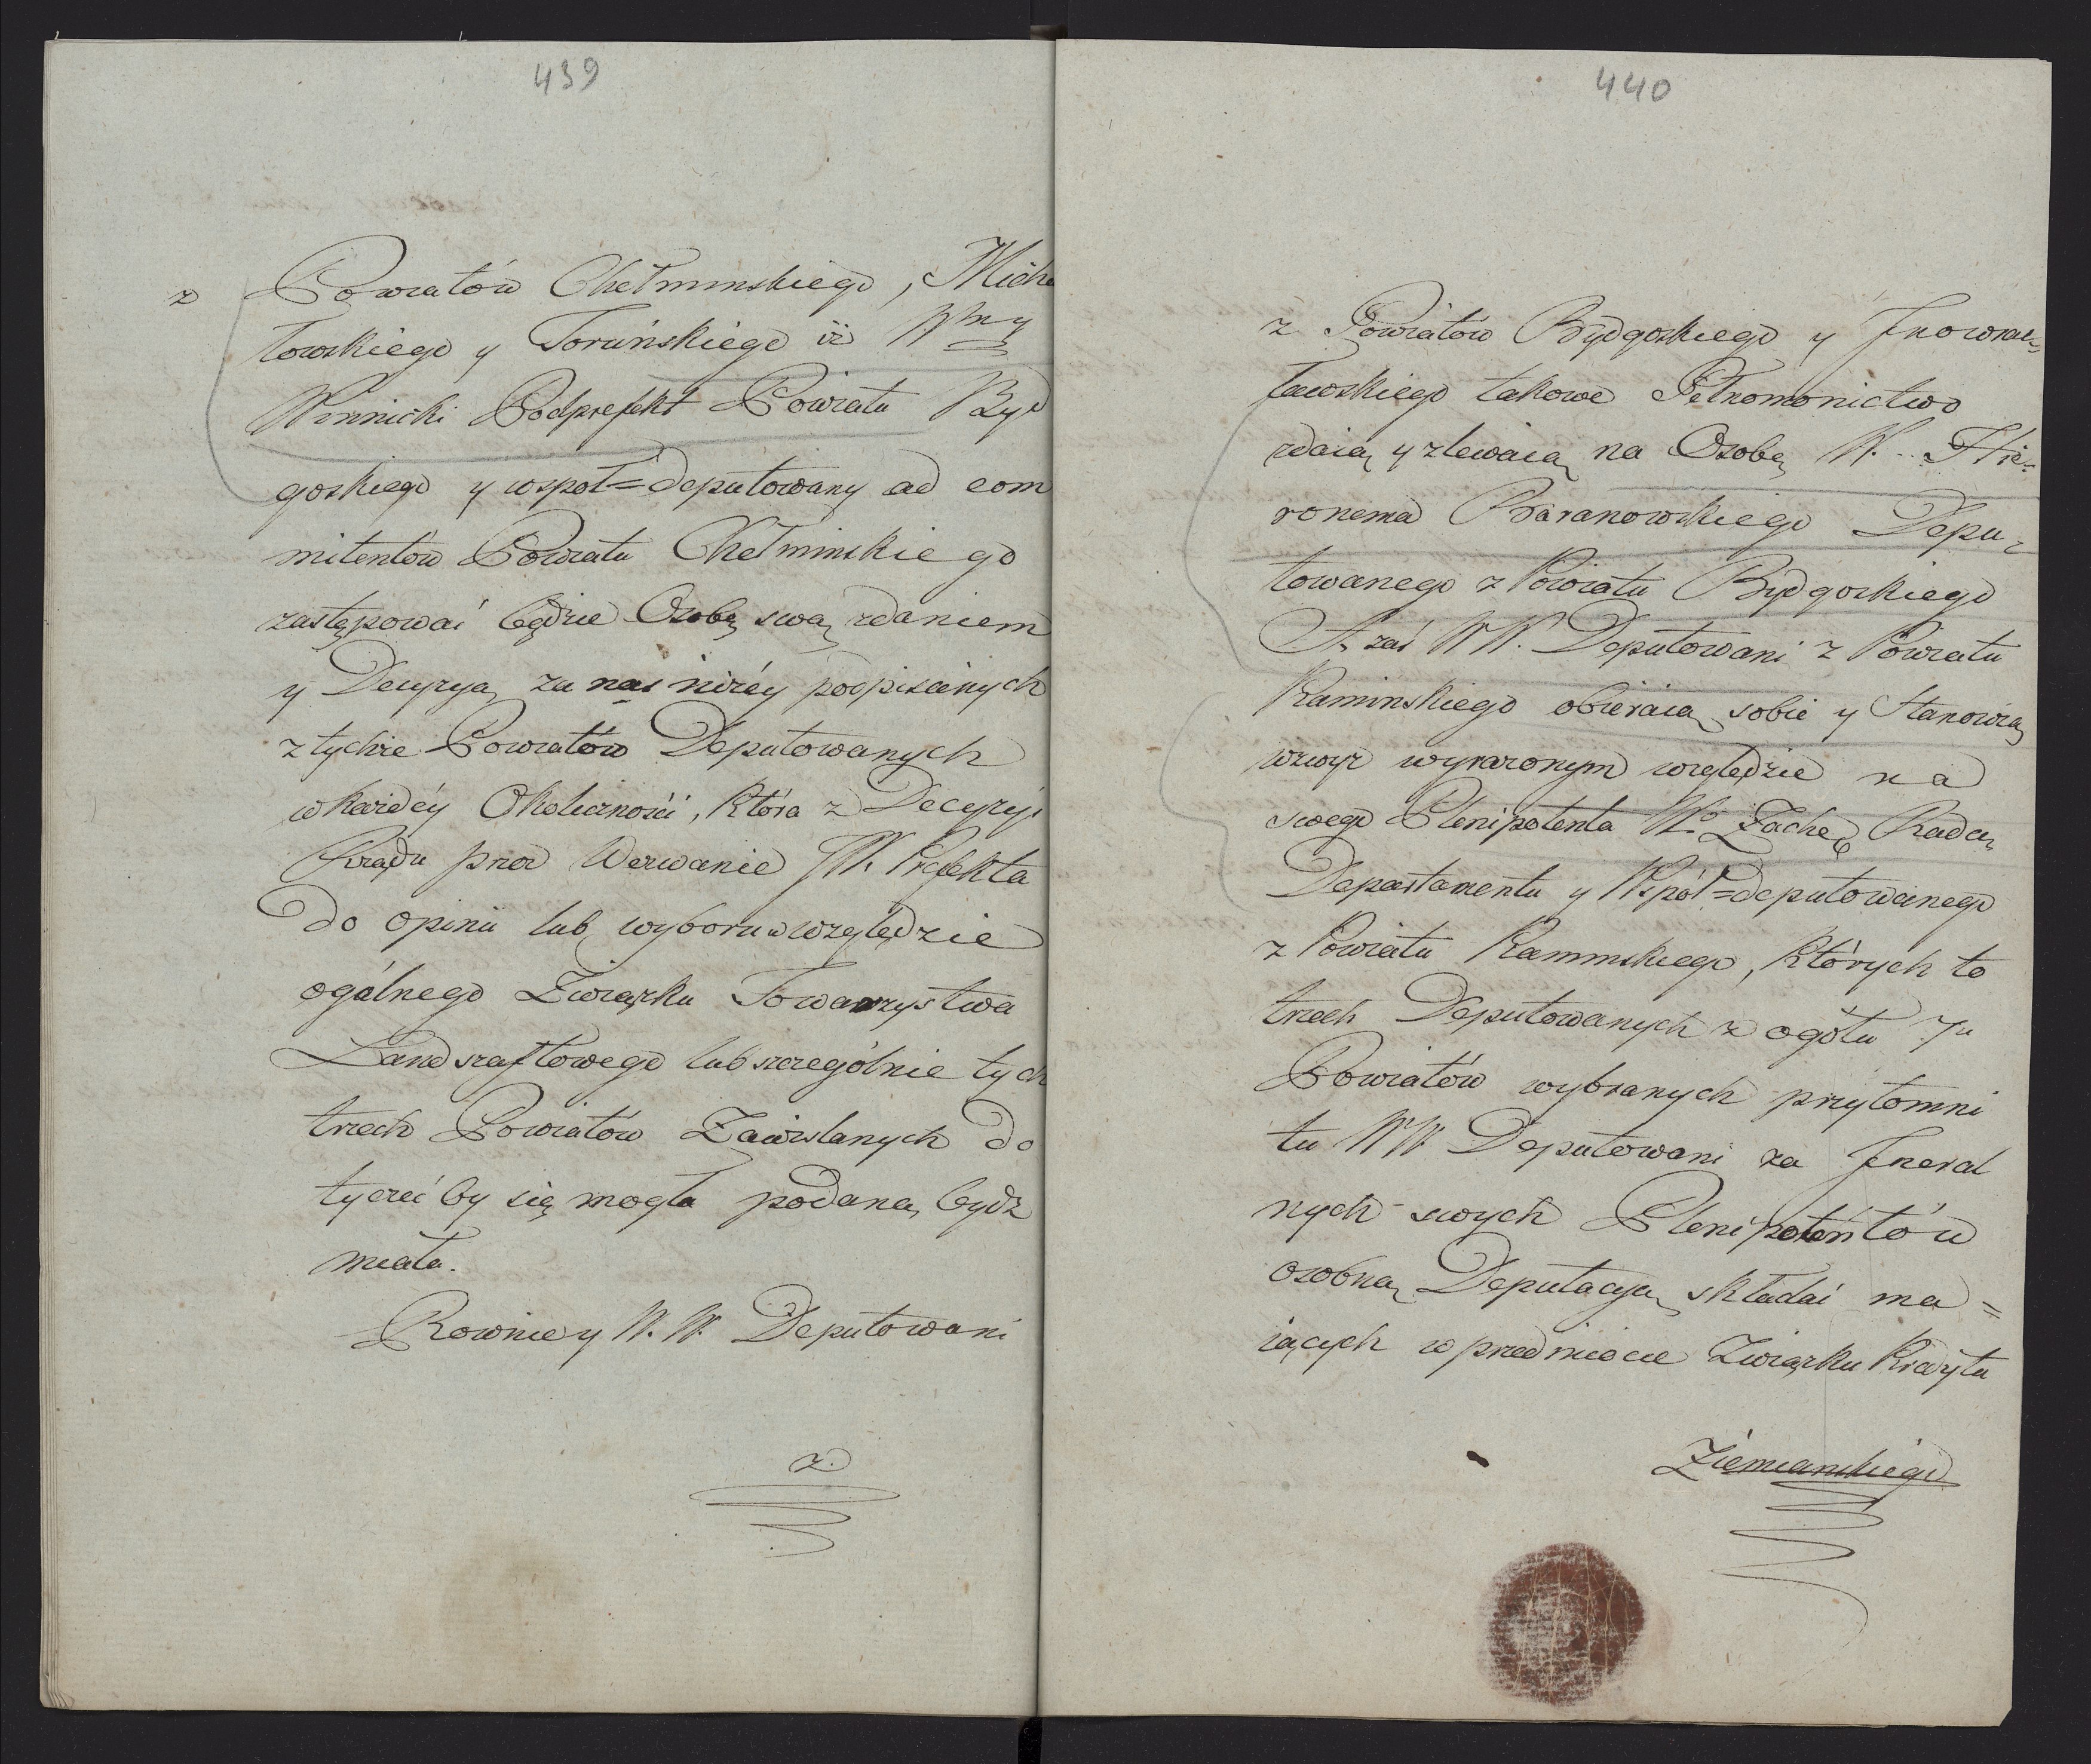 439
z Powiatów Chełminskiego, Micha
łowskiego y Toruńskiego iż Wmy
Winnicki Podprefekt Powiatu Byd
goskiego y wspoł=deputowany ad com
mitentow Powiatu Chełminskiego
zastępować będzie Osobę swą zdaniem
y Decyzyą za nas niżéy podpisanych
z tychże Powiatów Deputowanych
w każdéy Okoliczności, która z Decyzyi
Rządu przez Wezwanie JW. Prefekta
do opinii lub wyboru w względzie
ogólnego Związku Towarzystwa
Landszaftowego lub szczególnie tych
trzech Powiatów Zawislanych do
tyczeć by się mogła podaną bydź
miała.
Rownie y W. W. Deputowani
z
440
z Powiatów Bydgoskiego y Jnowroc=
ławskiego takowe Pełnomonictwo
zdaią y zlewaią na Osobę W. Hie=
ronema Baranowskiego Depu=
towanego z Powiatu Bydgoskiego
A zaś WW. Deputowani z Powiatu
Kaminskiego obieraią sobie y Stanowią
wzwyż wyrażonym względzie na
swego Plenipotenta Wo. Zachę Radcę
Departamentu y Wspoł=deputowanego
z Powiatu Kaminskiego, których to
trzech Deputowanych z ogółu 7u
Powiatów wybranych przytomni
tu WW Deputowani za Jneral
nych swych Plenipotentów
osobną Deputacyą składać ma=
iących w przedmiocie Związku Kredytu
Ziemianskiego